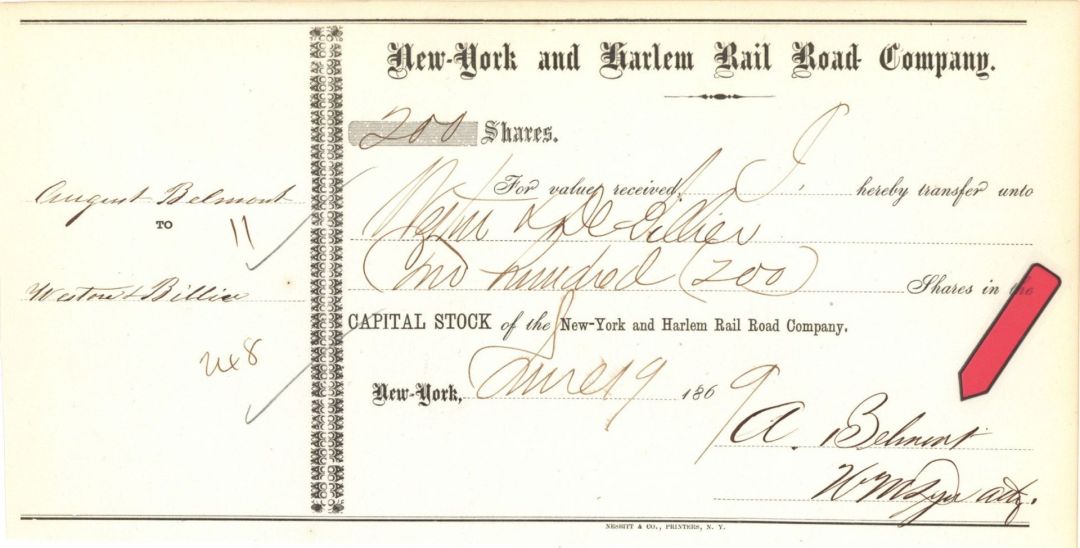 August Belmont
TO
11
Weston & Billier
248
New-York and Harlem Rail Road Company.
200 Shares.
For value received, I, hereby transfer unto
Weston & De Billier
Two hundred (200) Shares in the
CAPITAL STOCK of the New-York and Harlem Rail Road Company.
New-York, June 19 1869
A. Belmont
atty.
NESBITT & CO., PRINTERS, N. Y.